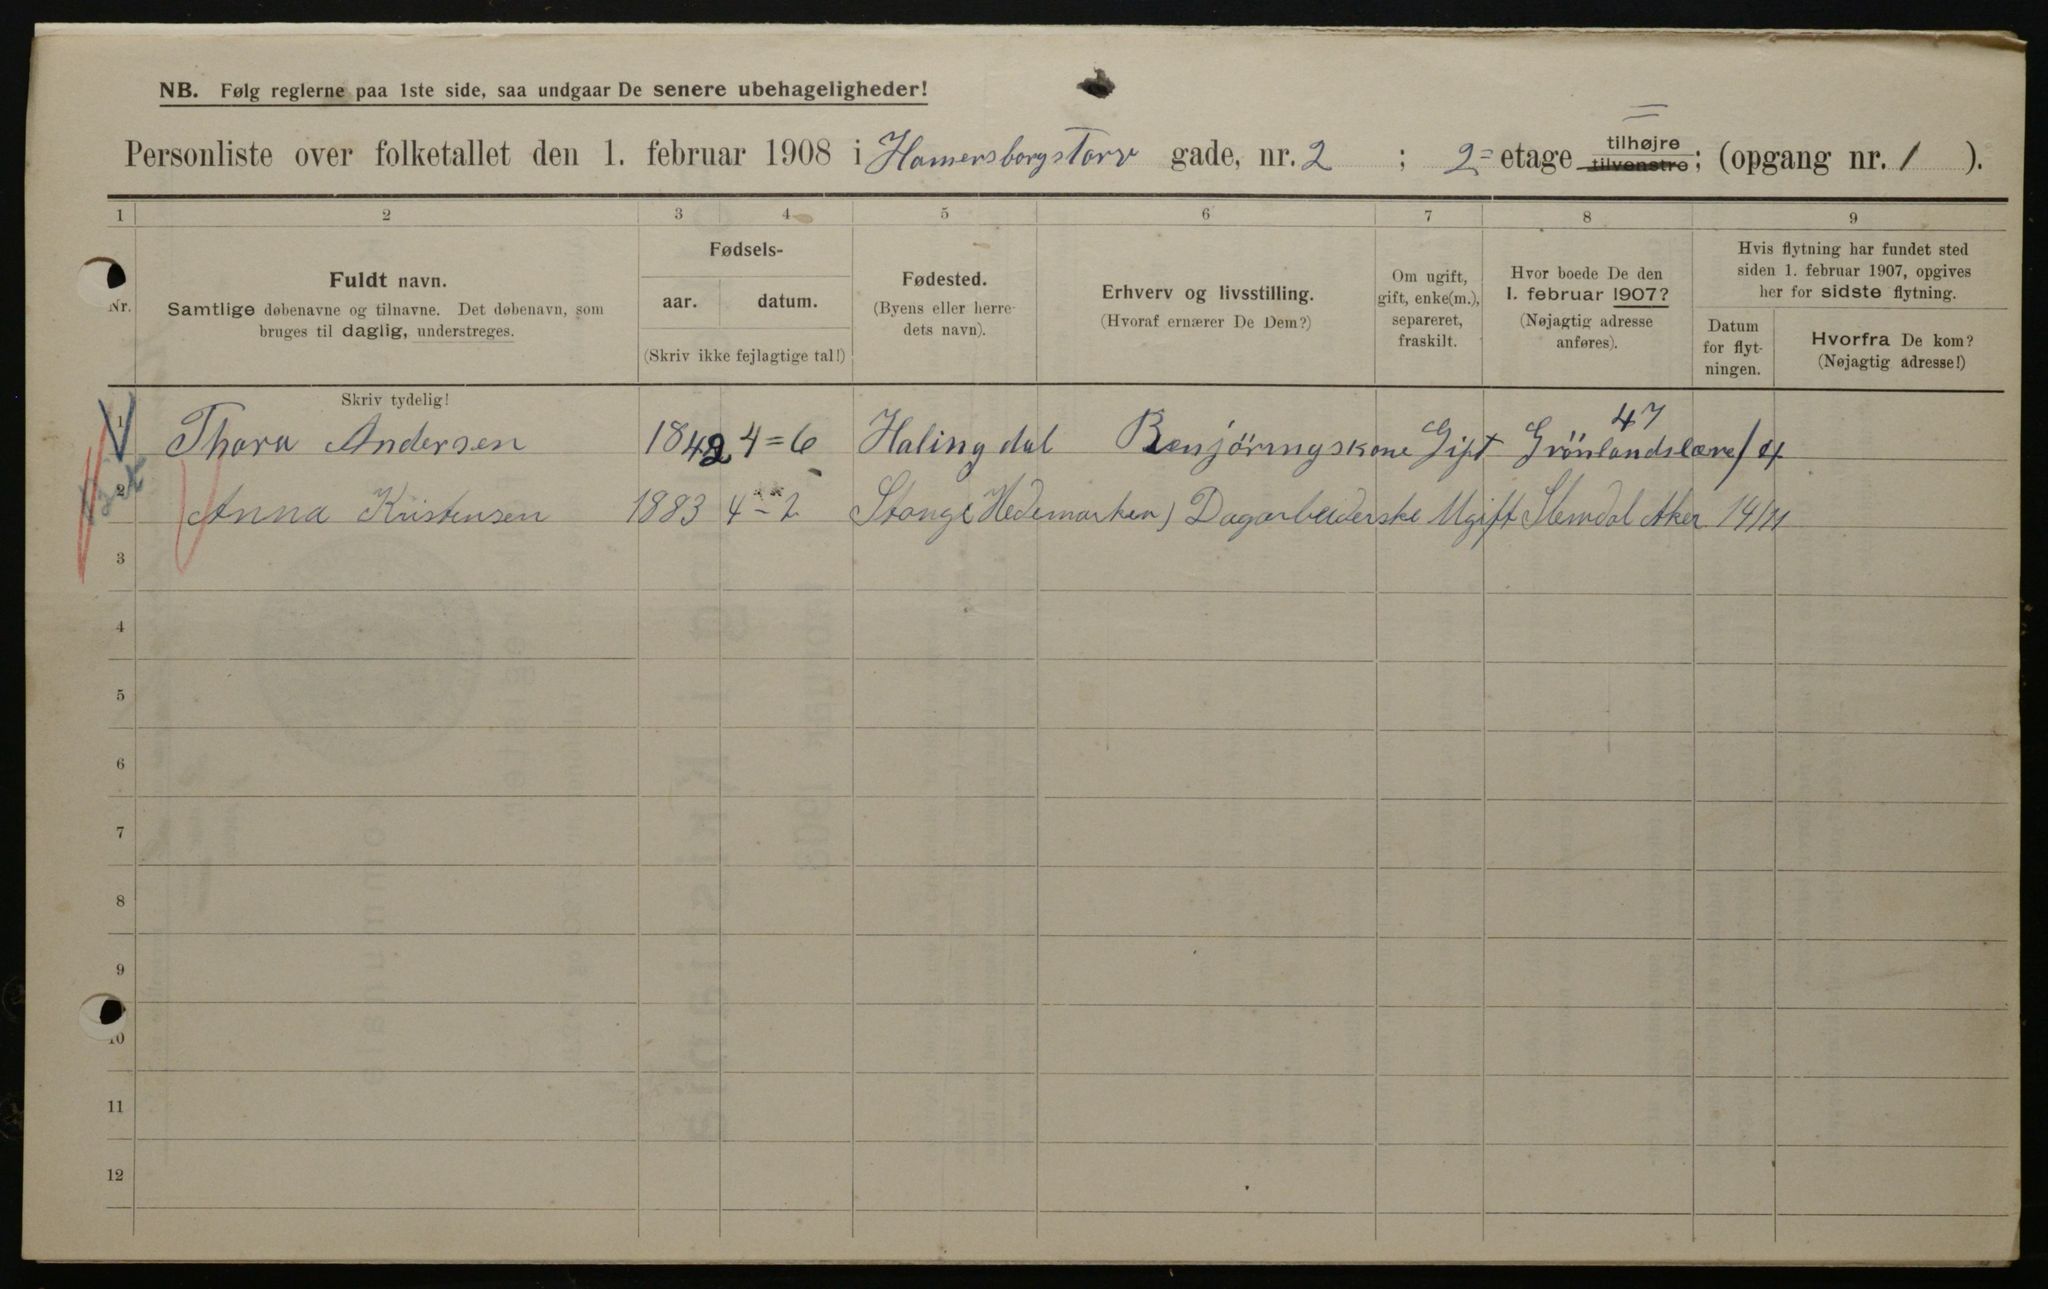 NB. Følg reglerne paa 1ste side, saa undgaar De senere ubehageligheder!
Personliste over folketallet den 1. februar 1908 i Hamersborgstorv gade, nr. 2 ; 2= etage tilhøjre tilvenstre; (opgang nr. 1 ).
1 2 3 4 5 6 7 8 9
Nr.
Fuldt navn.
Samtlige døbenavne og tilnavne. Det døbenavn, som
bruges til daglig, understreges.
Skriv tydelig!
Fødsels-
aar. datum.
(Skriv ikke fejlagtige tal!)
Fødested.
(Byens eller herre-
dets navn).
Erhverv og livsstilling.
(Hvoraf ernærer De Dem?)
Om ugift,
gift, enke(m.),
separeret,
fraskilt.
Hvor boede De den
1. februar 1907?
(Nøjagtig adresse
anføres).
Hvis flytning har fundet sted
siden 1. februar 1907, opgives
her for sidste flytning.
Datum
for flyt-
ningen.
Hvorfra De kom?
(Nøjagtig adresse!)
47
1 Thora Andersen 1842 4=6 Halingdal Renjöringskone Gift Grönlandslære /4
2 Anna Kristensen 1883 4-2 Stange Hedemarken) Dagarbeiderske Ugift Slemdal Aker 14/11
3
4
5
6
7
8
9
10
11
12